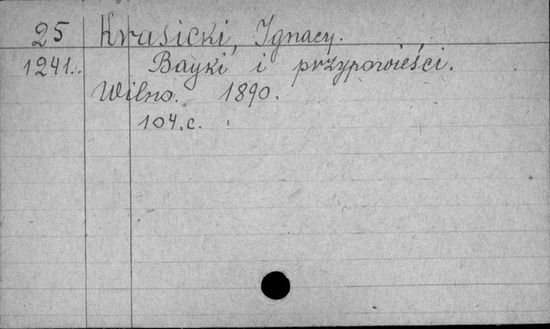 25 Krasicki, Ignacy.
1241. Bayki i przypowieści.
Wilno. 1890.
104.c.